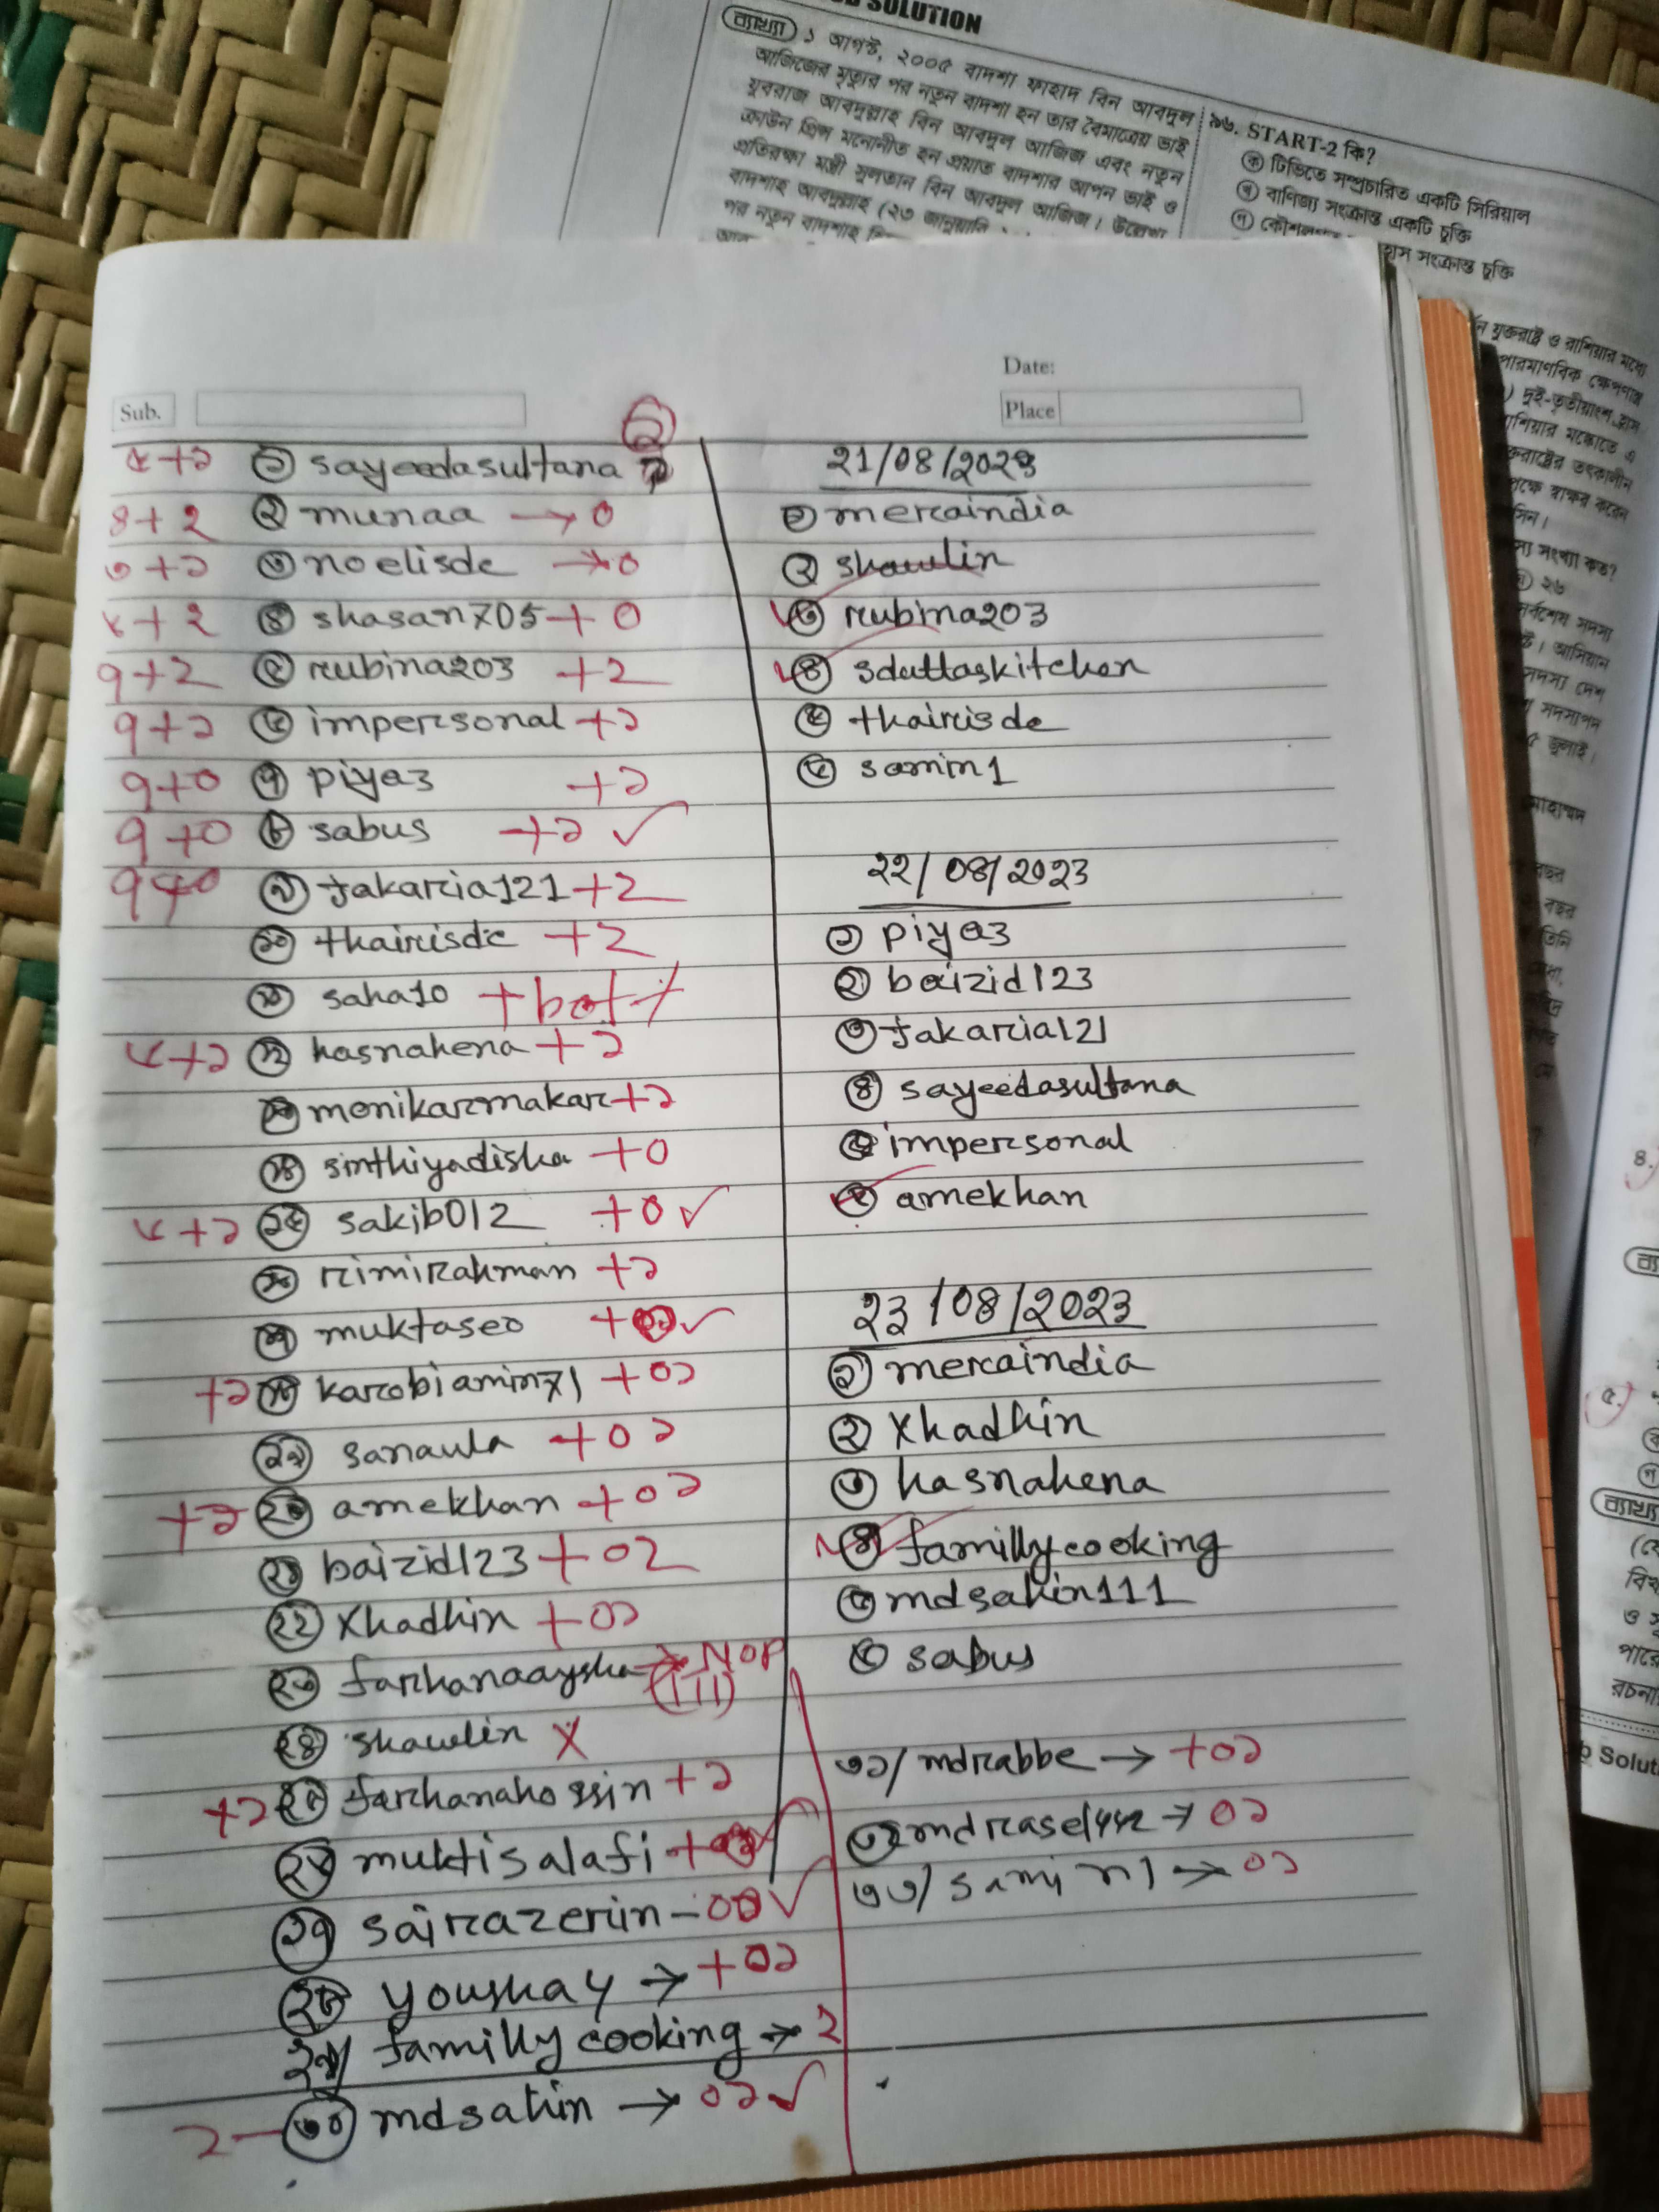 SOLUTION
ব্যাখ্যা ১ আগস্ট, ২০০৫ বাদশা ফাহাদ বিন আবদুল
আজিজের মৃত্যুর পর নতুন বাদশা হন তার বৈমাত্রেয় ভাই
যুবরাজ আবদুল্লাহ বিন আবদুল আজিজ এবং নতুন
ক্রাউন প্রিন্স মনোনীত হন প্রয়াত বাদশার আপন ভাই ও
প্রতিরক্ষা মন্ত্রী সুলতান বিন আবদুল আজিজ। উল্লেখ্য
বাদশাহ আবদুল্লাহ (২৩ জানুয়ারি
পর নতুন বাদশাহ
৯৬. START-2 কি?
ক টিভিতে সম্প্রচারিত একটি সিরিয়াল
খ বাণিজ্য সংক্রান্ত একটি চুক্তি
গ কৌশলগত
হ্রাস সংক্রান্ত চুক্তি
যুক্তরাষ্ট্র ও রাশিয়ার মধ্যে
পারমাণবিক ক্ষেপণাস্ত্র
দুই-তৃতীয়াংশ হ্রাস
রাশিয়ার মস্কোতে এ
যুক্তরাষ্ট্রের তৎকালীন
পক্ষে স্বাক্ষর করেন
সংখ্যা কত?
২৬
Date:
Sub.
Place
১ sayeedasultana
8+2 ২ munaa → 0
৩+১ ৩ noelisde → 0
৪ shasan705 + 0
৭+2 ৫ rubina203 +2
৭+১ ৬ impersonal +১
৭+0 ৭ piya3 +১
৭+0 ৮ sabus +১ ✓
৯ jakaria121 +2
১০ thairisde +2
১১ saha10 + bot
৬+১ ১২ hasnahena +১
১৩ monikarmakar +১
১৪ sinthiyadisha +0
৬+১ ১৫ sakib012 +0 ✓
১৬ rimirahman +১
১৭ muktaseo ✓
+১ ১৮ karobiamin71 +0১
১৯ sanaula +0১
+১ ২০ amekhan +0১
২১ baizid123 +02
২২ xhadhin +0১
২৩ farhanaaysha → NOP
(111)
২৪ shawlin X
+১ ২৫ farhanahossin +১
২৬ muktisalafi
২৭ sairazerin ✓
২৮ youshay → +0১
২৯/ familly cooking → 2
2 ৩০ mdsahin → 0১ ✓
21/08/2023
১ mercaindia
২ shawlin
৩ rubina203
৪ sduttaskitchen
৫ thairisde
৬ samin1
22/08/2023
১ piya3
২ baizid123
৩ jakaria121
৪ sayeedasultana
৫ impersonal
৬ amekhan
23/08/2023
১ mercaindia
২ xhadhin
৩ hasnahena
৪ famillycooking
৫ mdsahin111
৬ sabus
৩১/ mdrabbe → +0১
৩২ mdrasel442 → 0১
৩৩/ samin1 → 0১